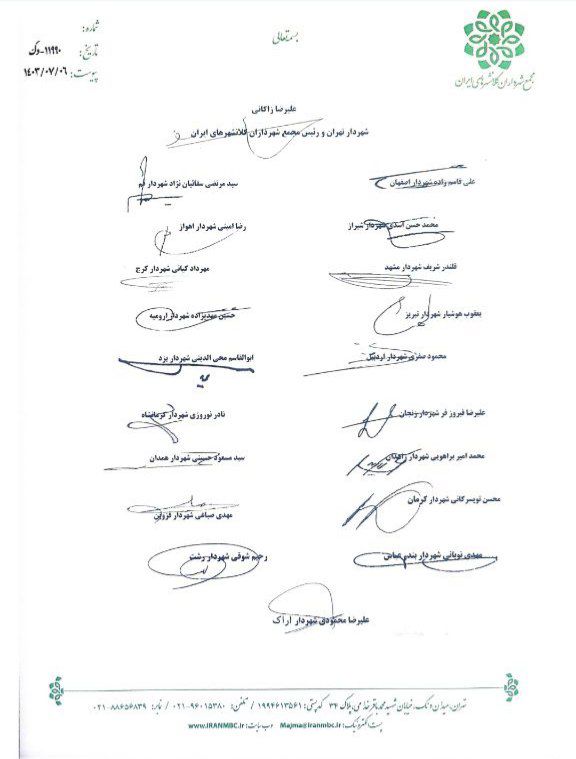 بسمه‌تعالی
شماره: ۱۱۹۹۰-وک
تاریخ:
پیوست: ۱۴۰۳/۰۷/۰۶
مجمع شهرداران کلانشهرهای ایران
علیرضا زاکانی
شهردار تهران و رئیس مجمع شهرداران کلانشهرهای ایران
علی قاسم زاده شهردار اصفهان
سید مرتضی سقائیان نژاد شهردار قم
محمد حسن اسدی شهردار شیراز
رضا امینی شهردار اهواز
قلندر شریف شهردار مشهد
مهرداد کیانی شهردار کرج
یعقوب هوشیار شهردار تبریز
حسین مهدیزاده شهردار ارومیه
محمود صفری شهردار اردبیل
ابوالقاسم محی الدینی شهردار یزد
علیرضا فیروز فر شهردار زنجان
نادر نوروزی شهردار کرمانشاه
محمد امیر براهویی شهردار زاهدان
سید مسعود حسینی شهردار همدان
محسن تویسرکانی شهردار کرمان
مهدی صباغی شهردار قزوین
مهدی نوبانی شهردار بندرعباس
رحیم شوقی شهردار رشت
علیرضا محمودی شهردار اراک
تهران، میدان ونک، خیابان شهید محمدباقر خدامی، پلاک ۳۴ کدپستی: ۱۹۹۴۶۱۳۵۶۱ / تلفن: ۹۶۰۱۵۳۸۰-۰۲۱ / نمابر: ۸۸۶۵۶۸۳۹-۰۲۱
پست الکترونیک: Majma@iranmbc.ir وب سایت: www.IRANMBC.ir